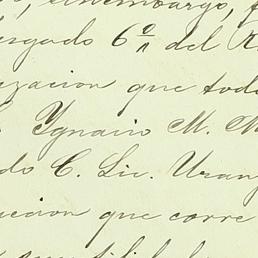 sin embargo, 
Juzgado 6º del R
zacion que todo
Ygnacio M. M
do C. Lic. Urang
cucion que corre